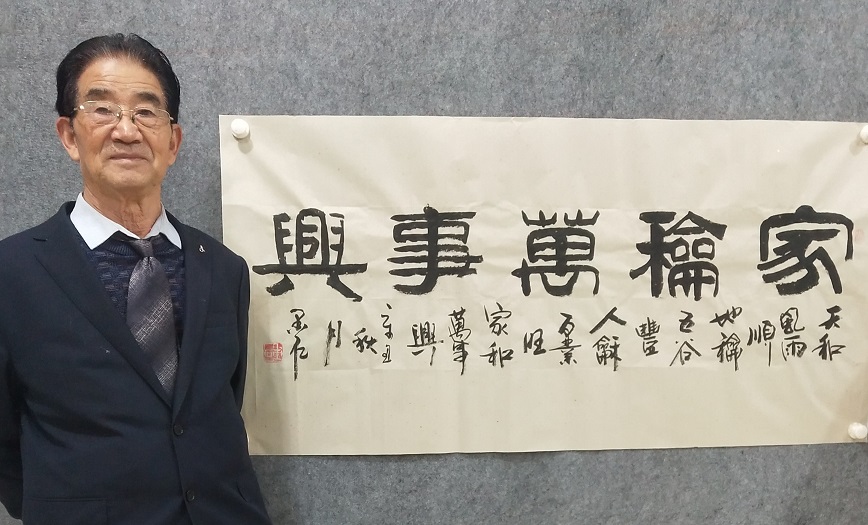 家龢萬事興
天和
風雨
順
地龢
五谷
豐
人龢
百業
旺
家和
萬事
興
辛丑
秋
月